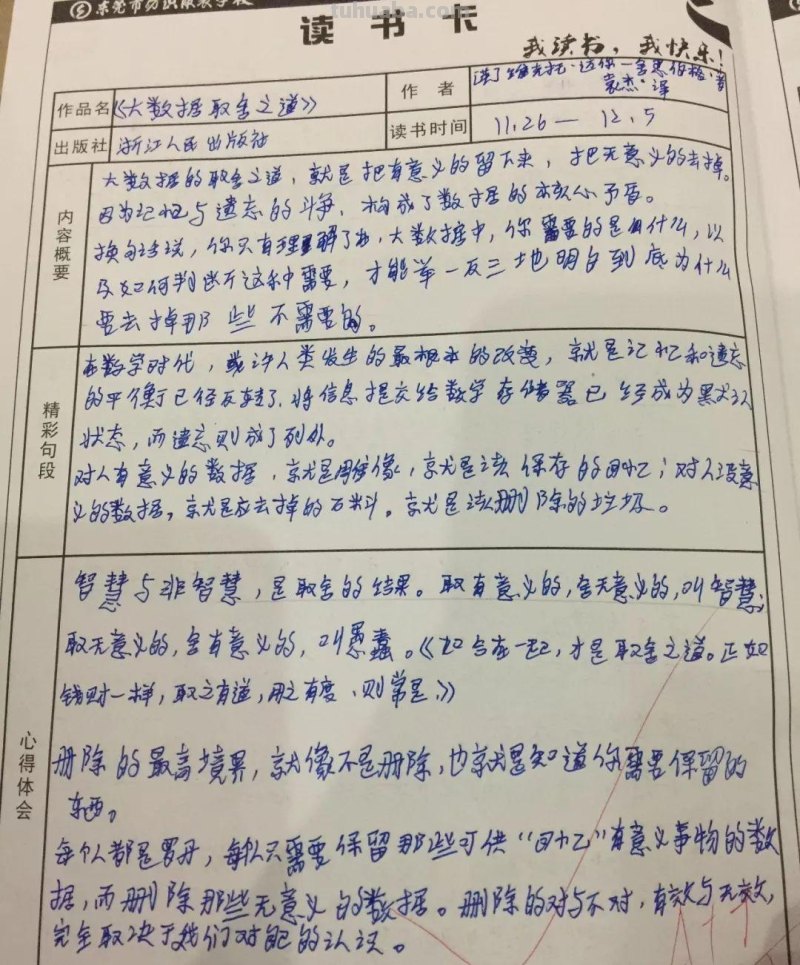 tuhuaba.com
东莞市 学校
读书卡
我读书，我快乐！
作品名 《大数据取舍之道》 作者 [英]维克托·迈尔-舍恩伯格·著
袁杰·译
出版社 浙江人民出版社 读书时间 11.26 — 12.5
内容概要
大数据的取舍之道，就是把有意义的留下来，把无意义的去掉。
因为记忆与遗忘的斗争，构成了数据的核心矛盾。
换句话说，你只有理解了在大数据中，你需要的是什么，以
及如何判断这种需要，才能举一反三地明白到底为什么
要去掉那些不需要的。
精彩句段
在数字时代，或许人类发生的最根本的改变，就是记忆和遗忘
的平衡已经反转了.将信息提交给数字存储器已经成为黑犬认
状态，而遗忘则成了列外。
对人有意义的数据，就是周像，就是该保存的回忆；对人没意
义的数据，就是应去掉的石料。就是该删除的垃圾。
心得体会
智慧与非智慧，是取舍的结果。取有意义的，舍无意义的，叫智慧；
取无意义的，舍有意义的，叫愚蠢。《知合在一起，才是取舍之道。正如
钱财一样，取之有道，用之有度，则常是》
删除的最高境界，就像不是删除，也就是知道你需要保留的
东西。
每个人都是罗丹，每个人只需要保留那些可供“回忆”有意义事物的数
据，而删除那些无意义的数据。删除的对与不对，有效与无效，
完全取决于我们对自己的认识。